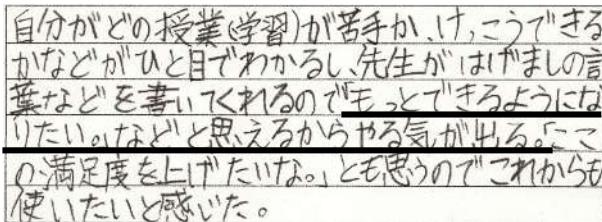 自分がどの授業(学習)が苦手か、けっこうできる
かなどがひと目でわかるし、先生がはげましの言
葉などを書いてくれるので「もっとできるようにな
りたい。」などと思えるからやる気が出る。「ここ
の満足度を上げたいな。」とも思うのでこれからも
使いたいと感じた。